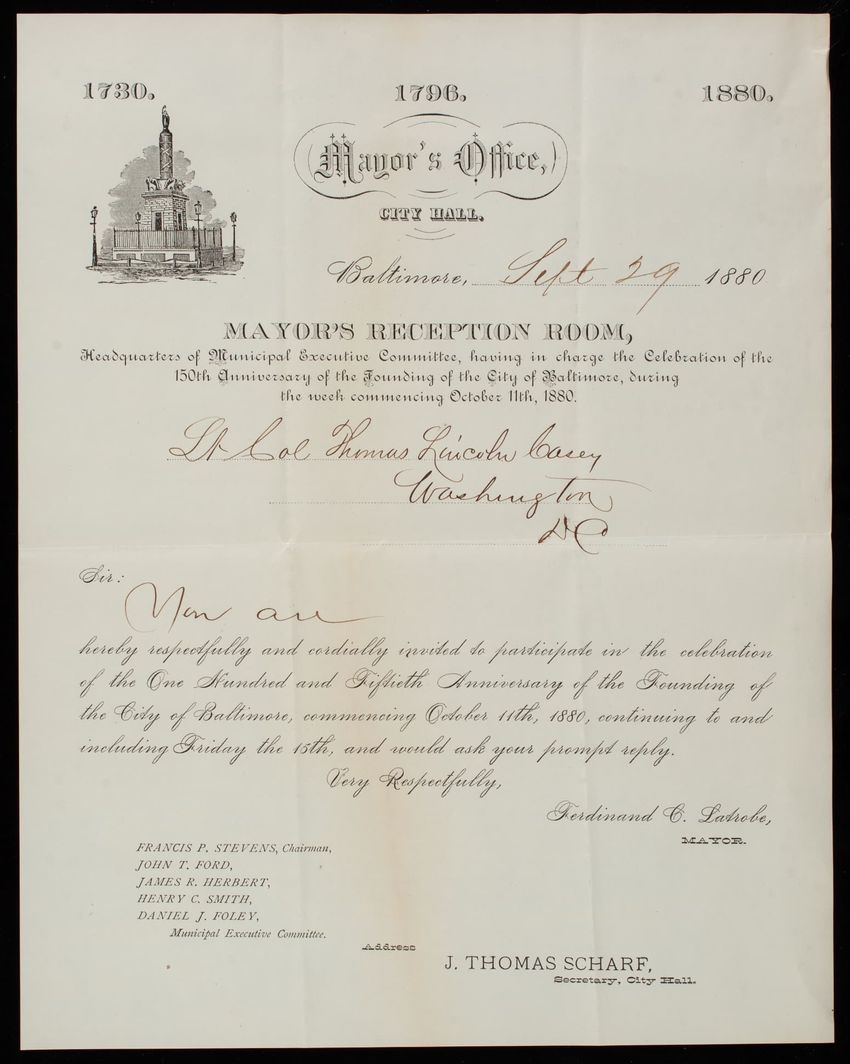 1730. 1796. 1880.
Mayor's Office,
CITY HALL.
Baltimore, Sept 29 1880
MAYOR'S RECEPTION ROOM,
Headquarters of Municipal Executive Committee, having in charge the Celebration of the
150th Anniversary of the Founding of the City of Baltimore, during
the week commencing October 11th, 1880.
Lt Col Thomas Lincoln Casey
Washington
DC
Sir:
You are
hereby respectfully and cordially invited to participate in the celebration
of the One Hundred and Fiftieth Anniversary of the Founding of
the City of Baltimore, commencing October 11th, 1880, continuing to and
including Friday the 15th, and would ask your prompt reply.
Very Respectfully,
Ferdinand C. Latrobe,
MAYOR.
FRANCIS P. STEVENS, Chairman,
JOHN T. FORD,
JAMES R. HERBERT,
HENRY C. SMITH,
DANIEL J. FOLEY,
Municipal Executive Committee.
Address
J. THOMAS SCHARF,
Secretary, City Hall.